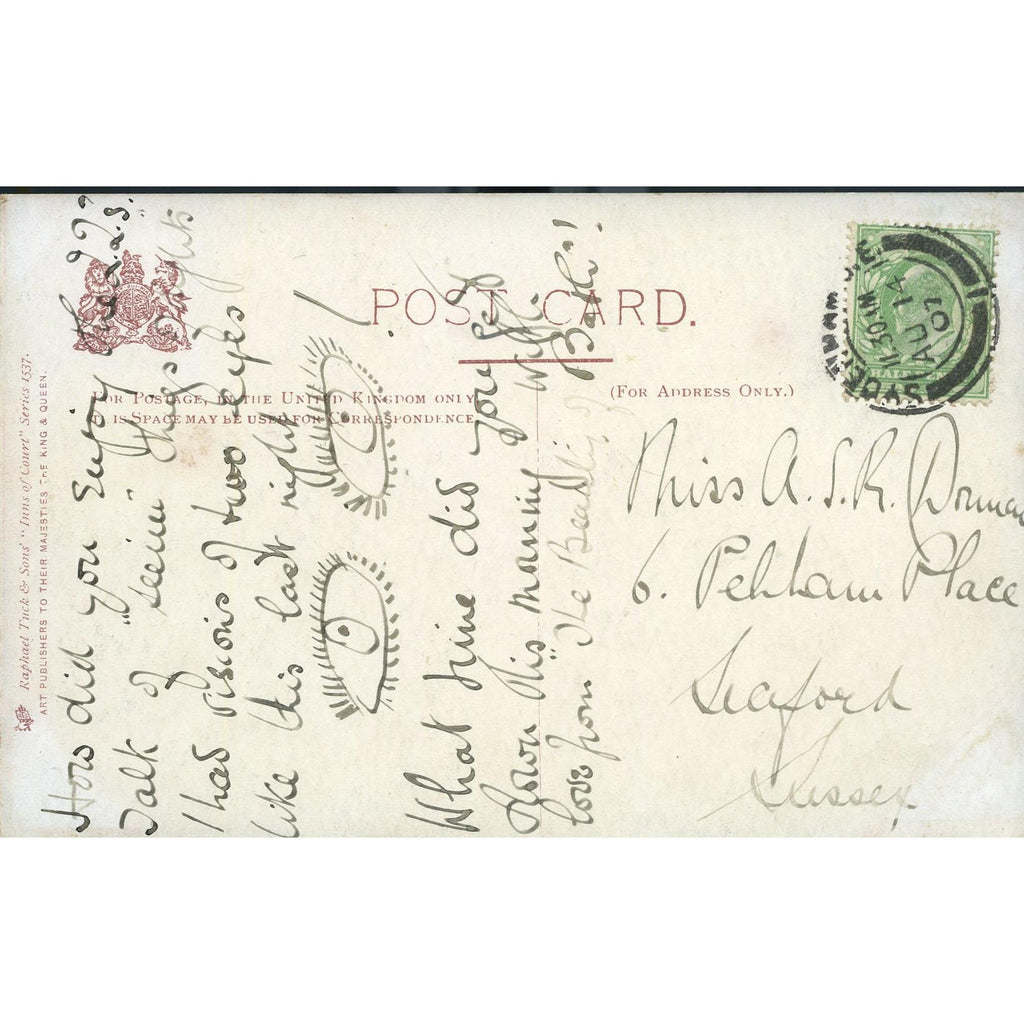 Raphael Tuck & Sons' "Inns of Court" Series 1537.
ART PUBLISHERS TO THEIR MAJESTIES THE KING & QUEEN.
POST CARD.
FOR POSTAGE, IN THE UNITED KINGDOM ONLY
THIS SPACE MAY BE USED FOR CORRESPONDENCE
(FOR ADDRESS ONLY.)
How did you Enjoy the
Talk of "seein' things
I had visions of two eyes
like this last night!
What time did you get
down this morning
love from The Beastly
Miss A. S. R. Dorman
6. Pelham Place
Seaford
Sussex
SYDENHAM
11.30 AM
AU 14
07
HALF